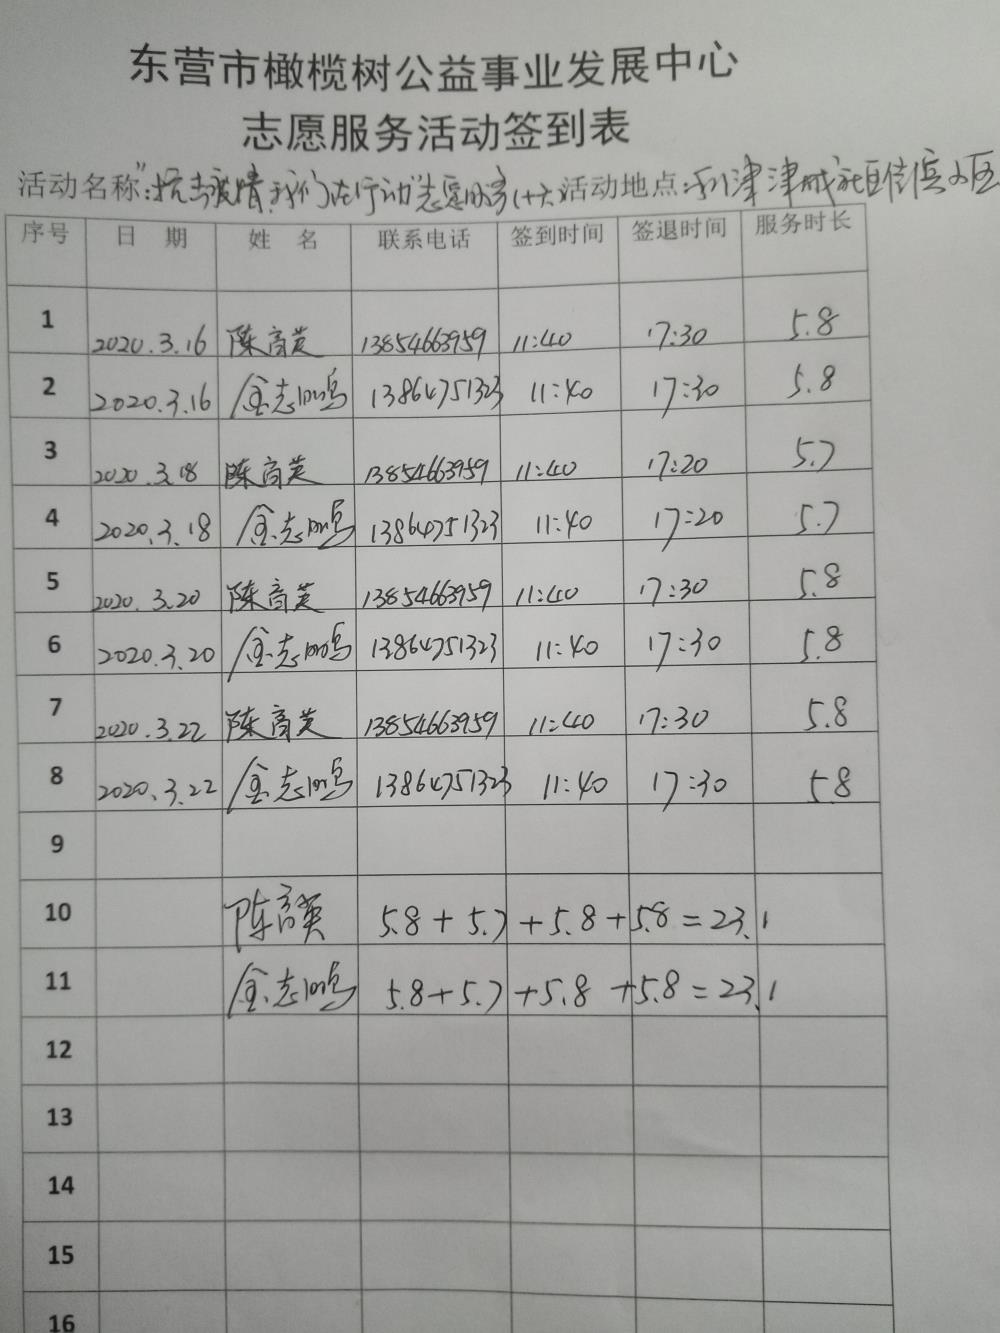 东营市橄榄树公益事业发展中心
志愿服务活动签到表
活动名称:"抗击疫情,我们在行动"志愿服务(十六) 活动地点:利津津城社区信宾小区
序号 日 期 姓 名 联系电话 签到时间 签退时间 服务时长
1 2020.3.16 陈高英 13854663959 11:40 17:30 5.8
2 2020.3.16 金志鸣 13864751323 11:40 17:30 5.8
3 2020.3.18 陈高英 13854663959 11:40 17:20 5.7
4 2020.3.18 金志鸣 13864751323 11:40 17:20 5.7
5 2020.3.20 陈高英 13854663959 11:40 17:30 5.8
6 2020.3.20 金志鸣 13864751323 11:40 17:30 5.8
7 2020.3.22 陈高英 13854663959 11:40 17:30 5.8
8 2020.3.22 金志鸣 13864751323 11:40 17:30 5.8
9
10 陈高英 5.8+5.7+5.8+5.8=23.1
11 金志鸣 5.8+5.7+5.8+5.8=23.1
12
13
14
15
16